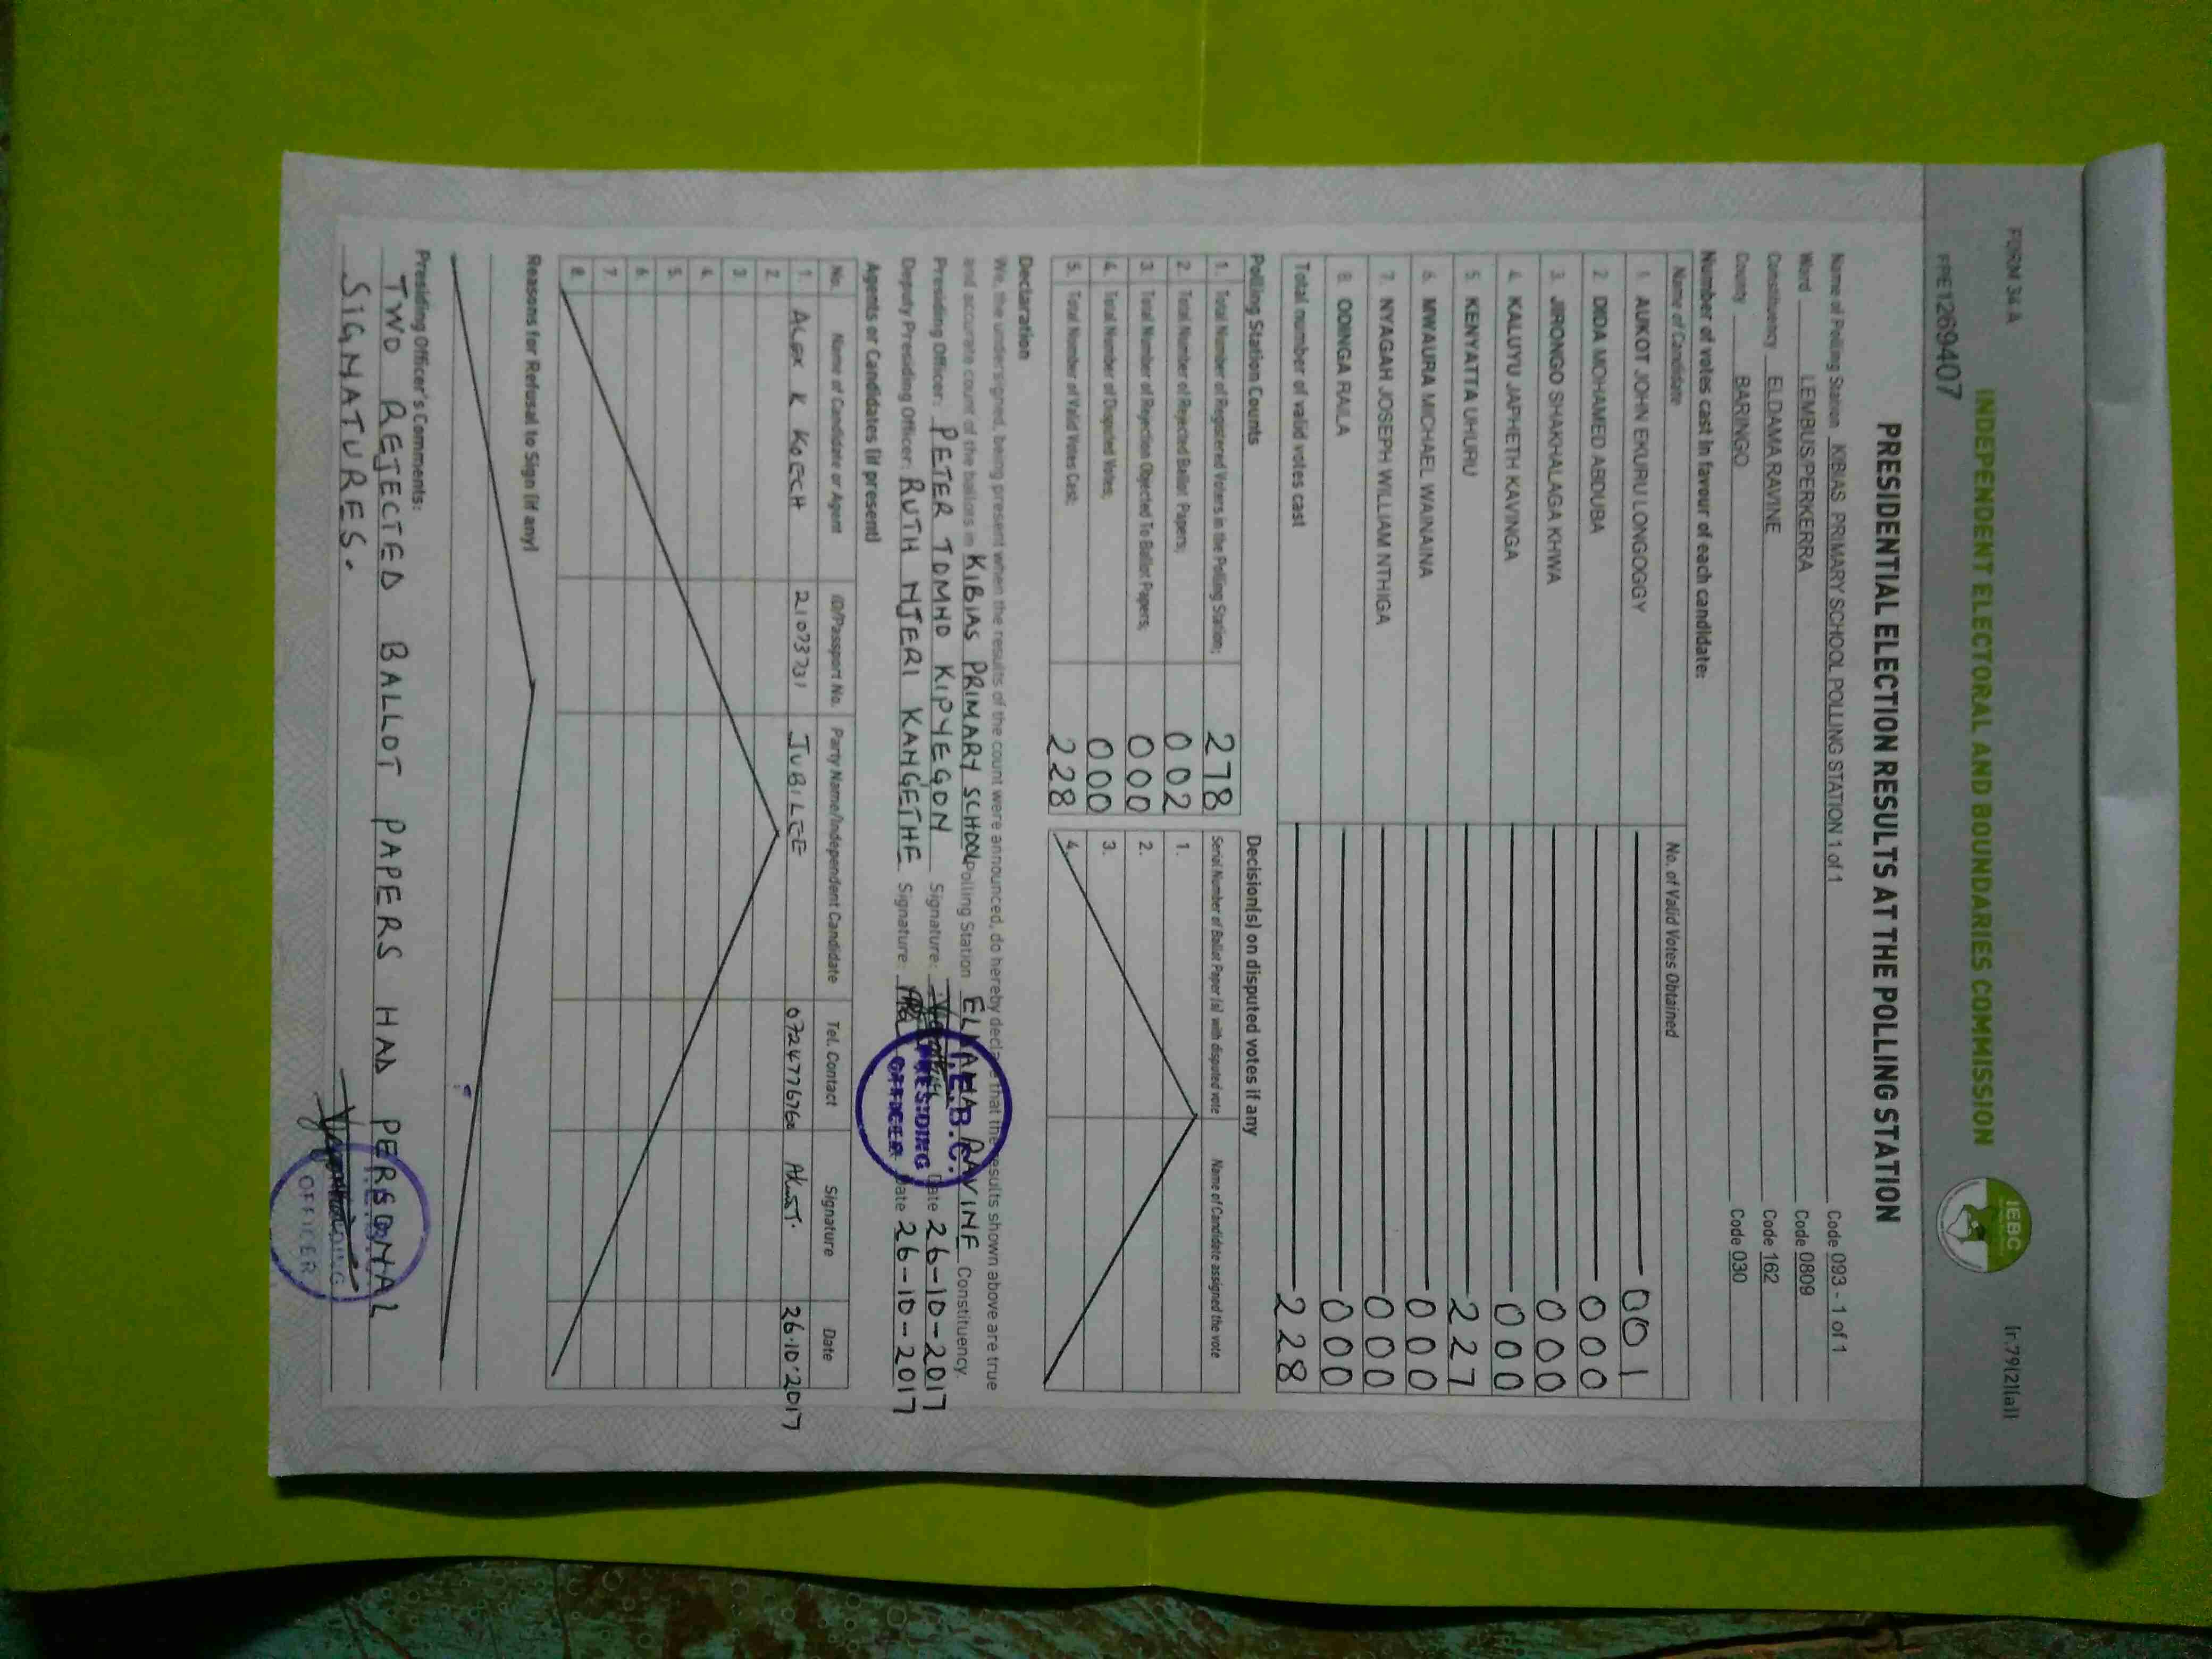 FORM 34A
(r.79(2)(a))
INDEPENDENT ELECTORAL AND BOUNDARIES COMMISSION
IEBC
FPE1269407
PRESIDENTIAL ELECTION RESULTS AT THE POLLING STATION
Name of Polling Station KIBIAS PRIMARY SCHOOL POLLING STATION 1 of 1 Code 093 - 1 of 1
Ward LEMBUS/PERKERRA Code 0809
Constituency ELDAMA RAVINE Code 162
County BARINGO Code 030
Number of votes cast in favour of each candidate:
Name of Candidate No. of Valid Votes Obtained
1. AUKOT JOHN EKURU LONGOGGY 001
2. DIDA MOHAMED ABDUBA 000
3. JIRONGO SHAKHALAGA KHWA 000
4. KALUYU JAPHETH KAVINGA 000
5. KENYATTA UHURU 227
6. MWAURA MICHAEL WAINAINA 000
7. NYAGAH JOSEPH WILLIAM NTHIGA 000
8. ODINGA RAILA 000
Total number of valid votes cast 228
Polling Station Counts
1. Total Number of Registered Voters in the Polling Station; 278
2. Total Number of Rejected Ballot Papers; 002
3. Total Number of Rejection Objected To Ballot Papers; 000
4. Total Number of Disputed Votes; 000
5. Total Number of Valid Votes Cast; 228
Decision(s) on disputed votes if any
Serial Number of Ballot Paper (s) with disputed vote Name of Candidate assigned the vote
1.
2.
3.
4.
Declaration
We, the undersigned, being present when the results of the count were announced, do hereby declare that the results shown above are true
and accurate count of the ballots in KIBIAS PRIMARY SCHOOL Polling Station ELDAMA RAVINE Constituency.
Presiding Officer: PETER TOMNO KIPYEGON Signature: Date 26-10-2017
Deputy Presiding Officer: RUTH NJERI KANGETHE Signature: Date 26-10-2017
I.E.B.C.
PRESIDING
OFFICER
Agents or Candidates (if present)
No. Name of Candidate or Agent ID/Passport No. Party Name/Independent Candidate Tel. Contact Signature Date
1. ALEX K KOECH 21073731 JUBILEE 26.10.2017
2.
3.
4.
5.
6.
7.
8.
Reasons for Refusal to Sign (if any)
Presiding Officer's Comments:
TWO REJECTED BALLOT PAPERS HAD PERSONAL
SIGNATURES.
OFFICER